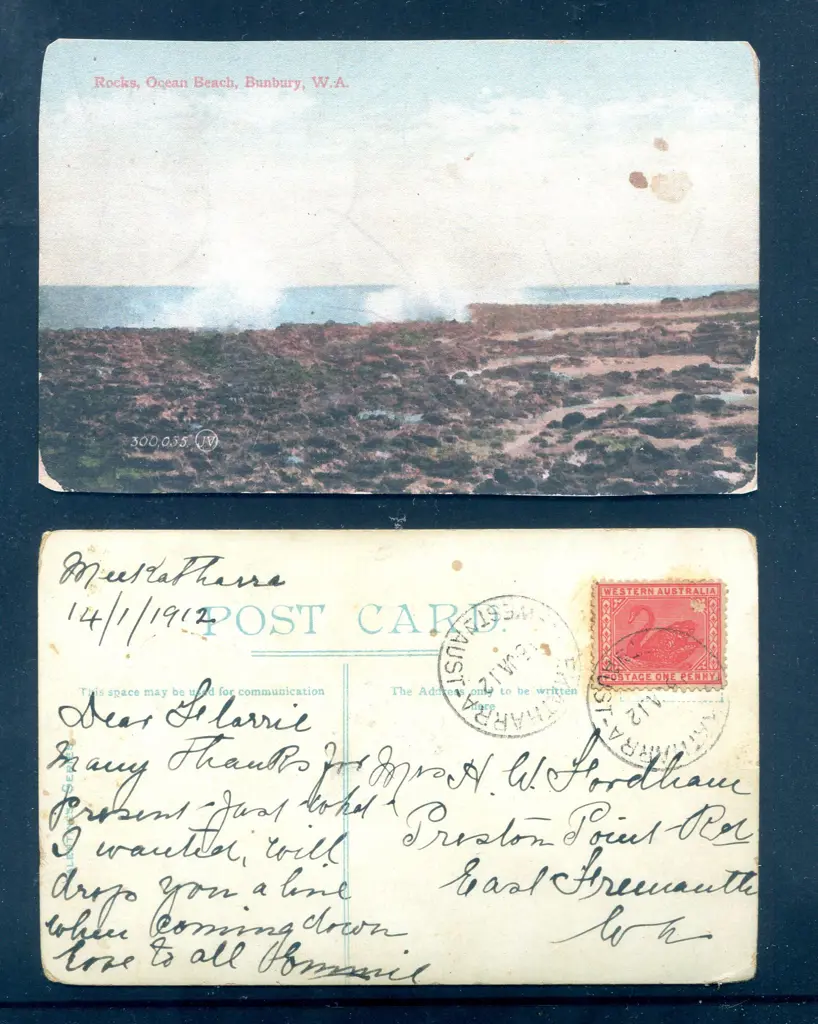 Rocks, Ocean Beach, Bunbury, W.A.
300,035 JV
Meekatharra
14/1/1912
POST CARD.
WESTERN AUSTRALIA
POSTAGE ONE PENNY
This space may be used for communication
The Address only to be written
here
Dear Florrie
Many thanks for
present - just what
I wanted, will
drop you a line
when coming down
love to all
Mrs H. W. Fordham
Preston Point Rd
East Fremantle
W A